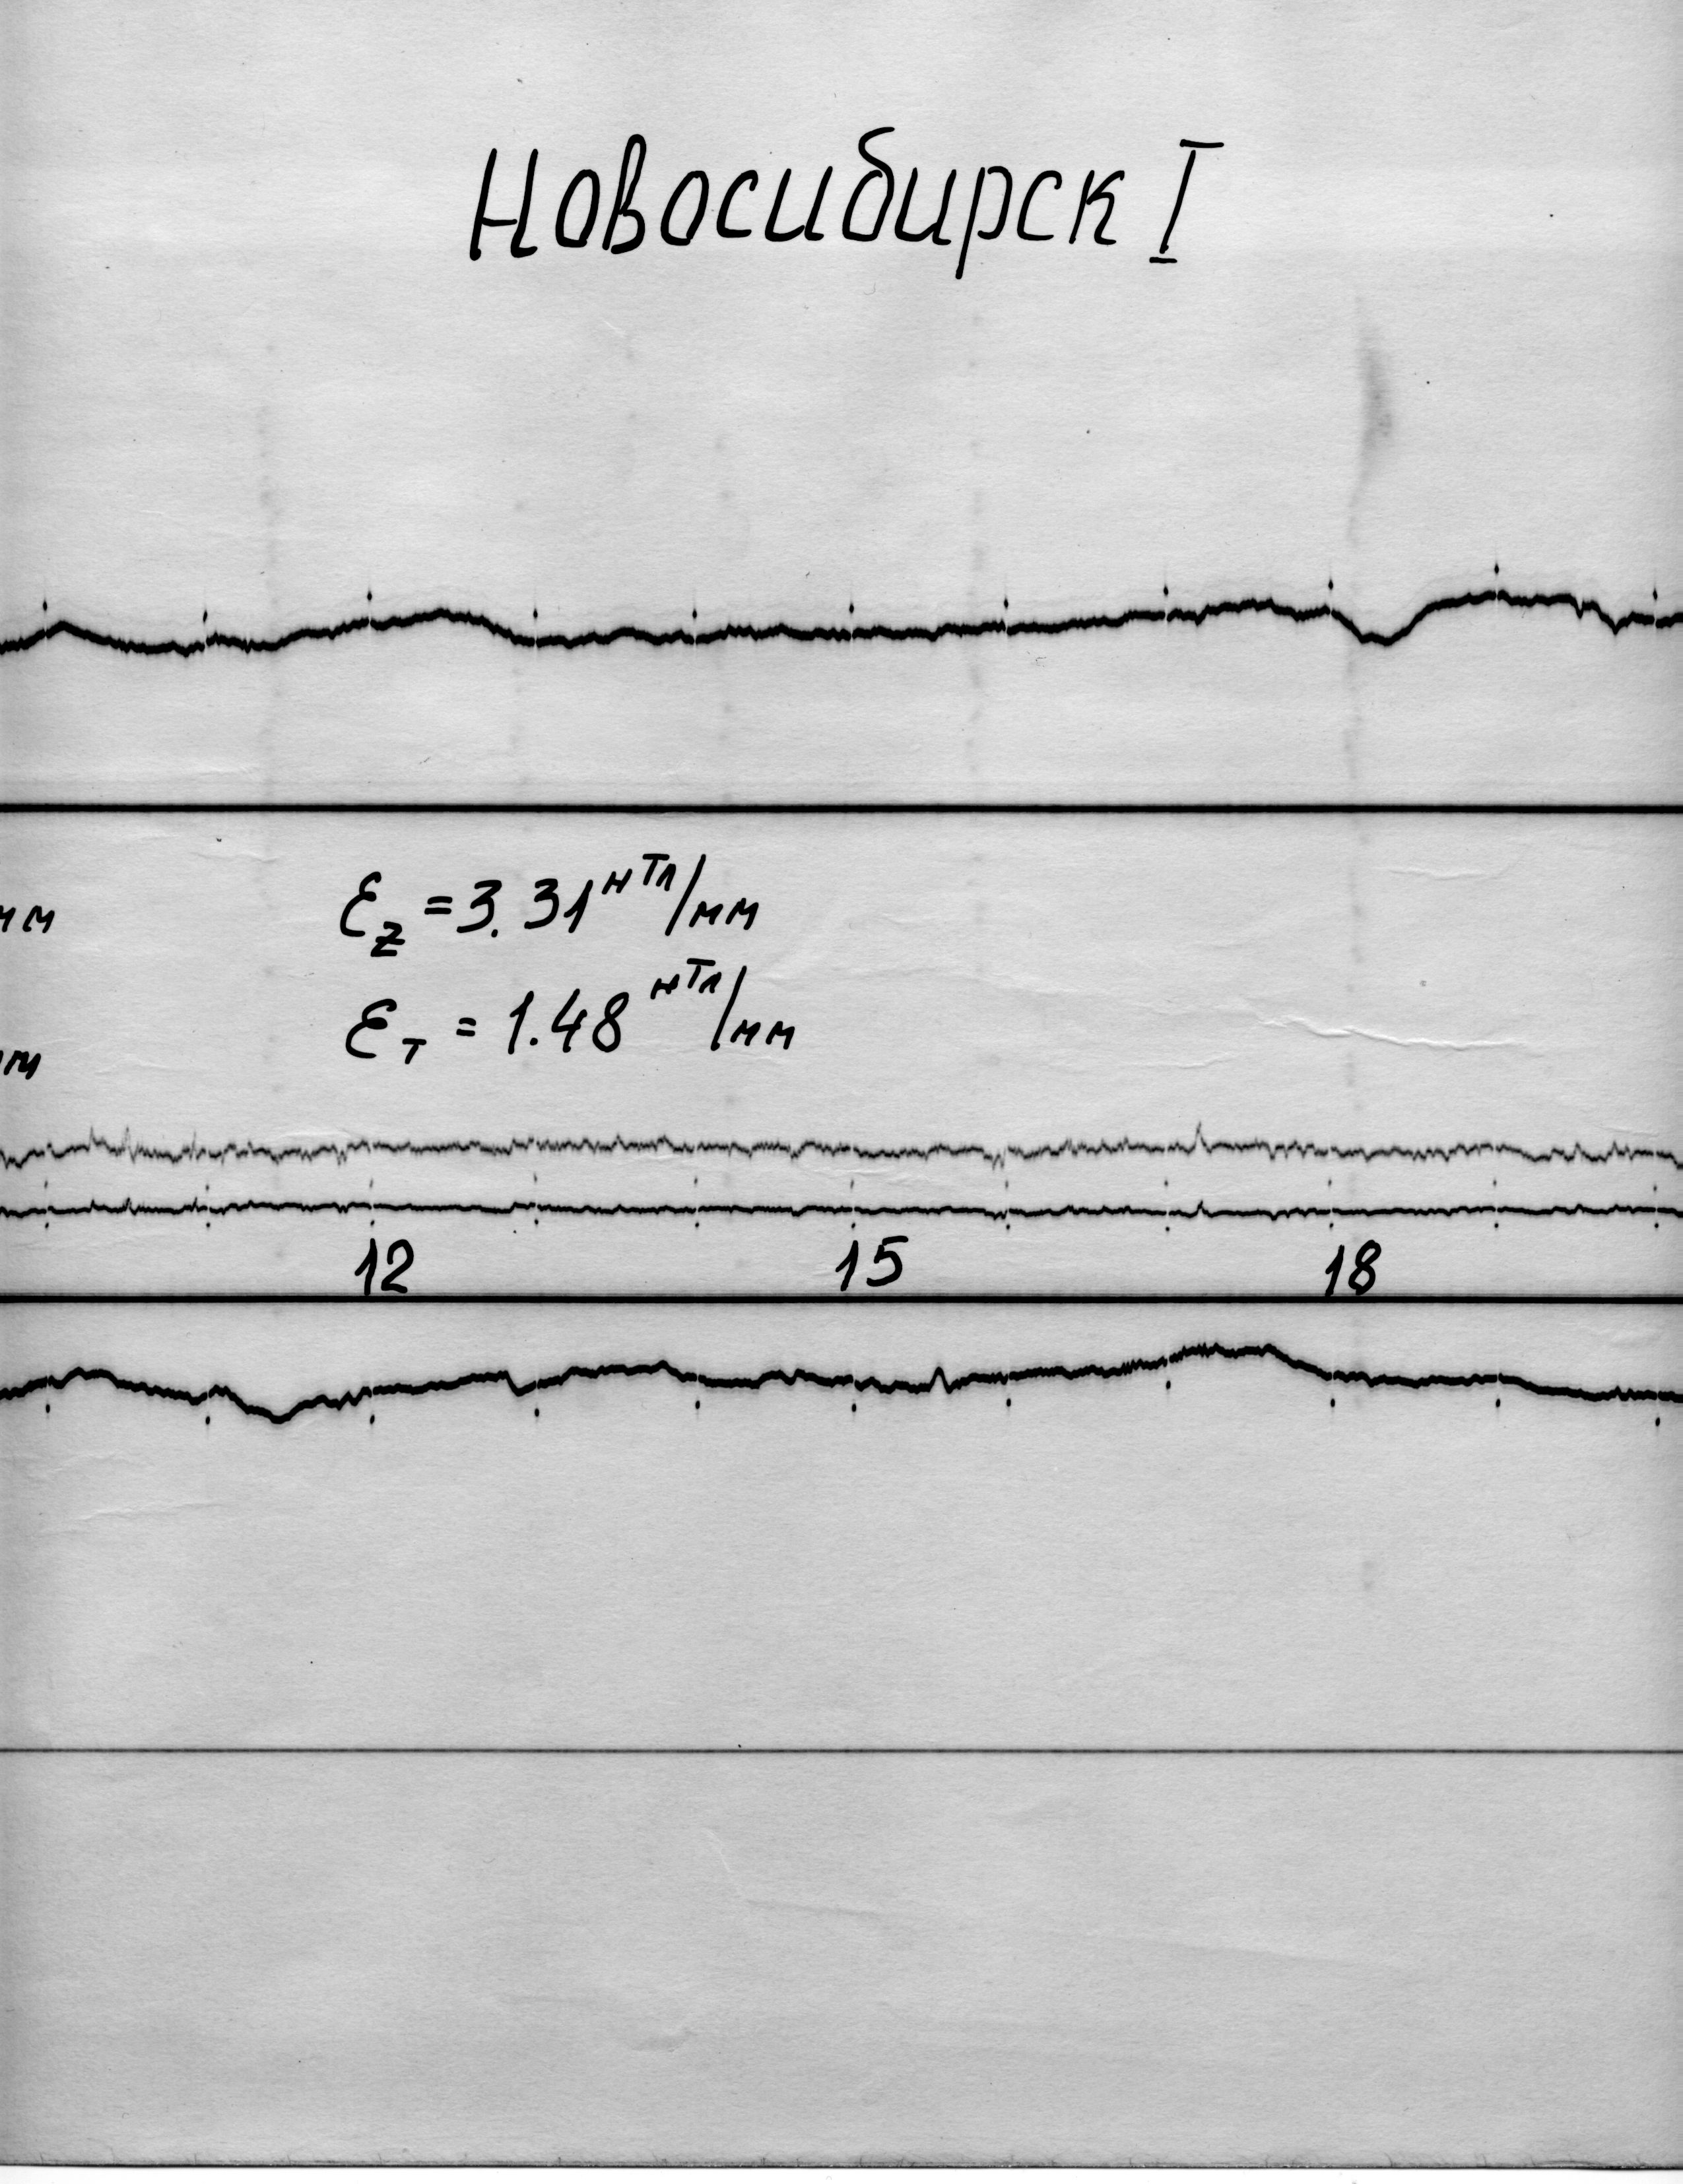 Новосибирск I
мм
Ez = 3.31 нТл/мм
мм
Eт = 1.48 нТл/мм
12 15 18